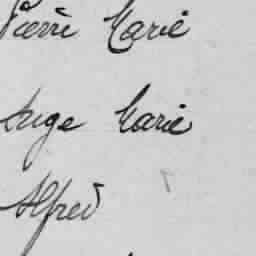 Pierre Marie
Ange Marie
Alfred